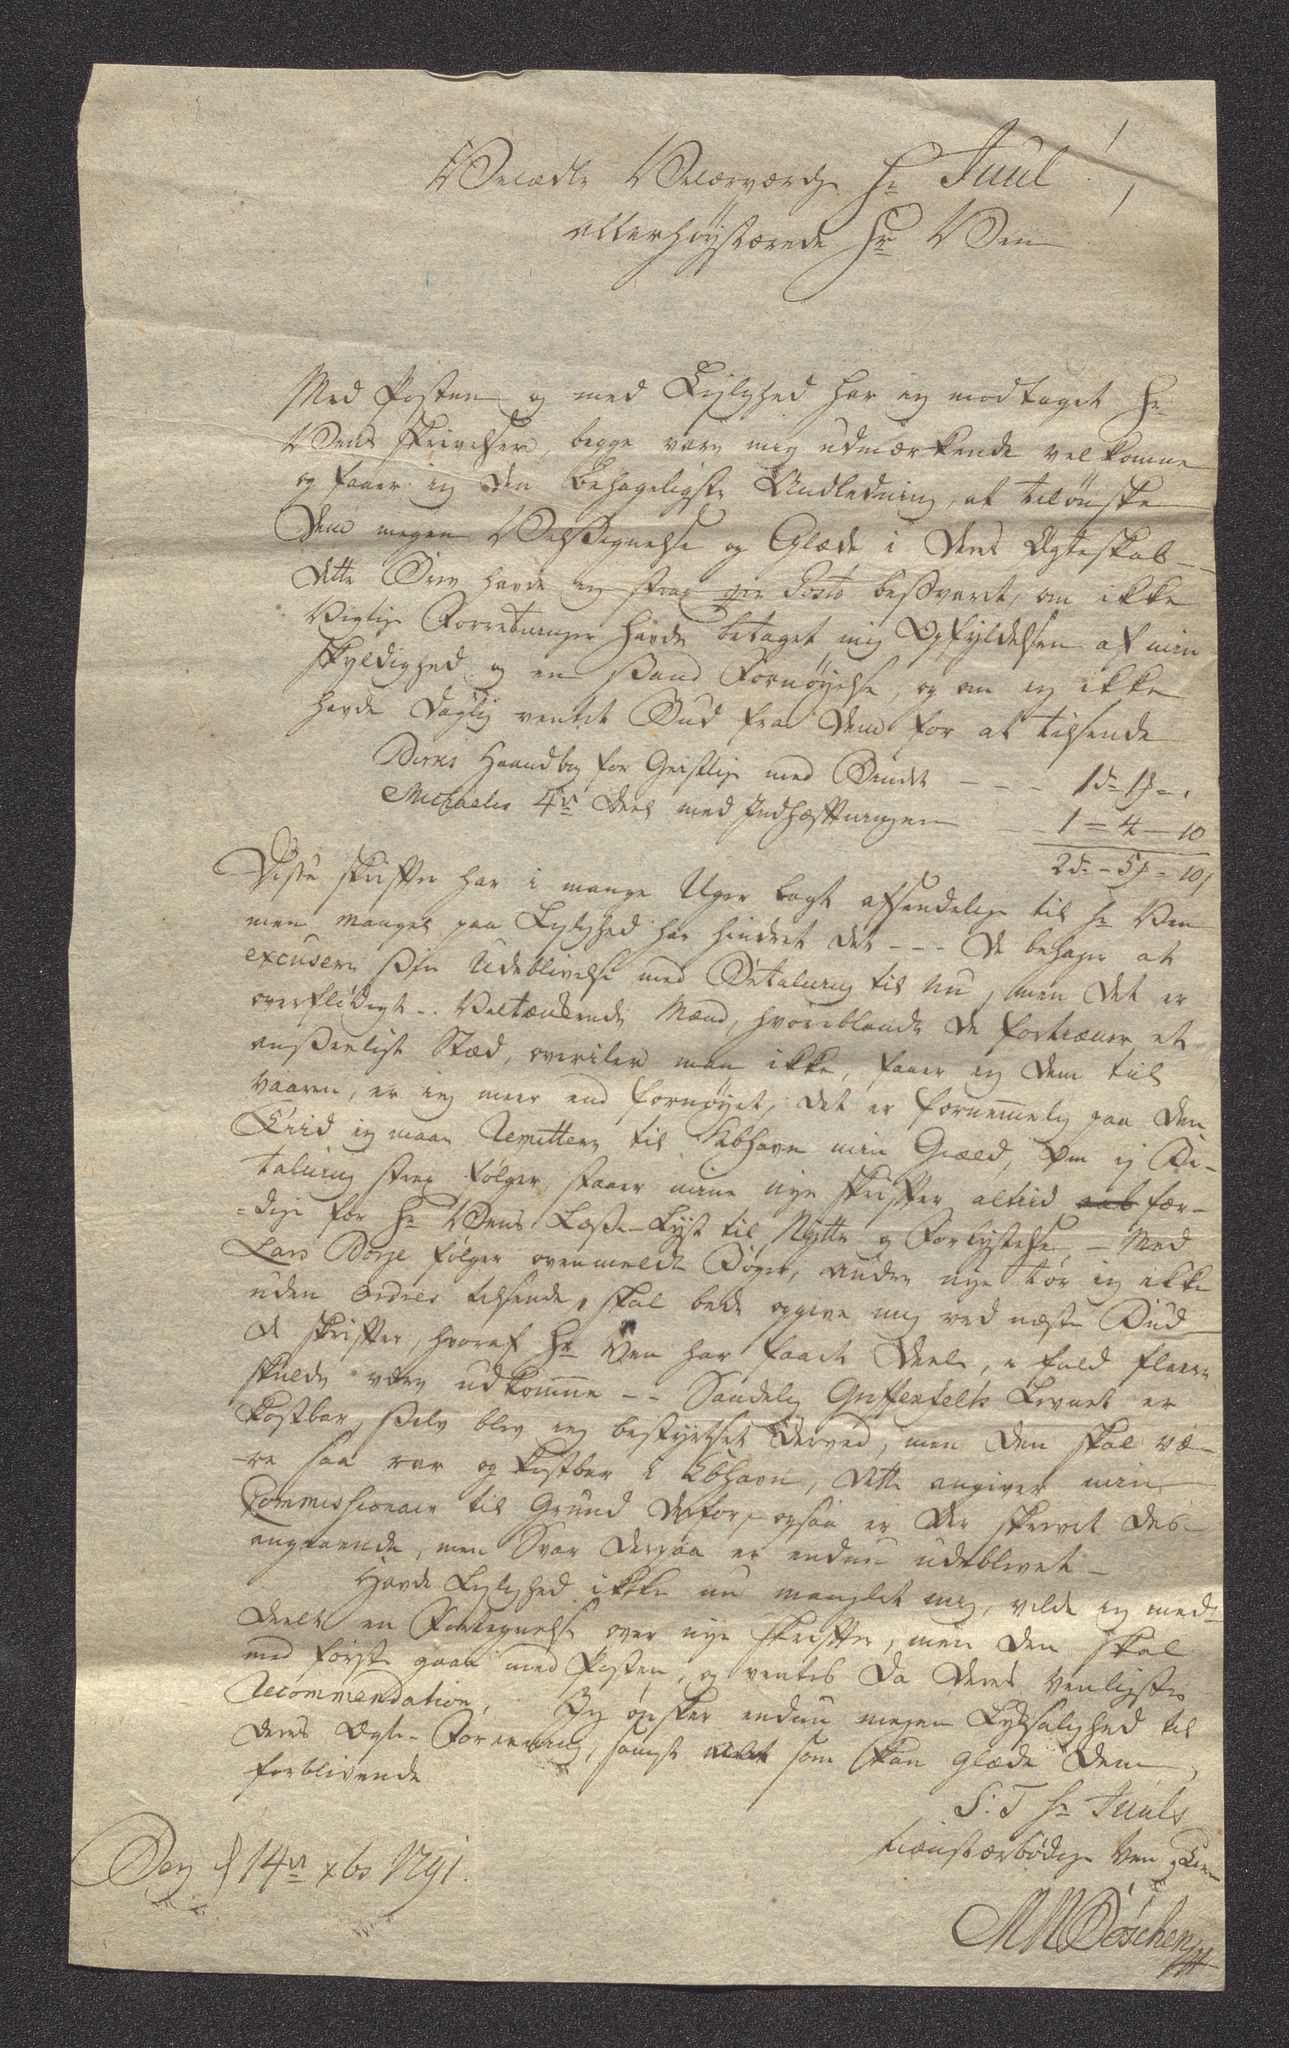 Velædle Velærværdige Hr Juul!
allerhøystærede Hr Ven!
Med Posten og med Lejlighed har jeg modtaget Hr
Vens skrivelser, begge vare mig udmærkende velkomne
og faaer jeg den behageligste Andledning, at tilønske
Dem megen Velsignelse og Glæde i Deres Ægteskab --
dette Brev havde jeg strax per Posto besvaret, om ikke
Vigtige Forretninger havde betaget mig Opfyldelsen af min
Skyldighed og en sand Fornøyelse, og om jeg ikke
havde daglig ventet Bud fra Dem for at tilsende
Birks Haandbog for Geistlige med Bindet - - - 1d - 1ƒ - .
Michaelis 4de Deel med Indhæftningen - - 1 - 4 - 10
2d - 5ƒ - 10ƒ
Disse skrifter har i mange Uger lagt afsendelige til Hr Ven
men mangel paa Lejlighed har hindret det --- De behager at
excusere sin Udeblivelse med Betaling til nu, men det er
overflødigt -. Veltænkende Mænd, hvoriblandt De fortiæner et
ansseeligt Stæd, overiler man ikke, faaer jeg dem til
Vaaren, er jeg meer end fornøyet, det er fornemmelig paa den
Tiid jeg maae Remittere til Kbhavn min Gield, Om ej Be-
taling strax følger, staaer mine nye skrifter altiid fær-
-dige for Hr Vens Læse-Lyst til Nytte og Forlystelse, - Med
Lars Borge følger ovenmeldte Bøger, andre nye tør jeg ikke
uden Ordres tilsende, skal bede opgive mig ved næste Bud
de skrifter, hvoraf Hr Ven har faaet Deele, i fald fleere
skulde være udkomne -- Sandelig Griffenfelds Levnet er
kostbar, selv blev jeg bestyrtset derved, men den skal væ-
-re saa rar og kostbar i Kbhavn, dette angiver min
Commissionair til Grund derfor, ogsaa er der skrevet des-
angaaende, men Svar derpaa er endnu udeblevet -
Havde Lejlighed ikke nu manglet mig, vilde jeg med-
deelt en Fortegnelse over nye skrifter, men den skal
med første gaae med Posten, og ventes da deres venligste
Recommendation, Jeg ønsker endnu megen Lyksalighed til
deres Ægte-Forening, samt alt som kan glæde Dem,
forblivende
S. T. Hr Juuls
tienstærbødige Ven
Berg d 14de xbr 1791.
MM Bøschen